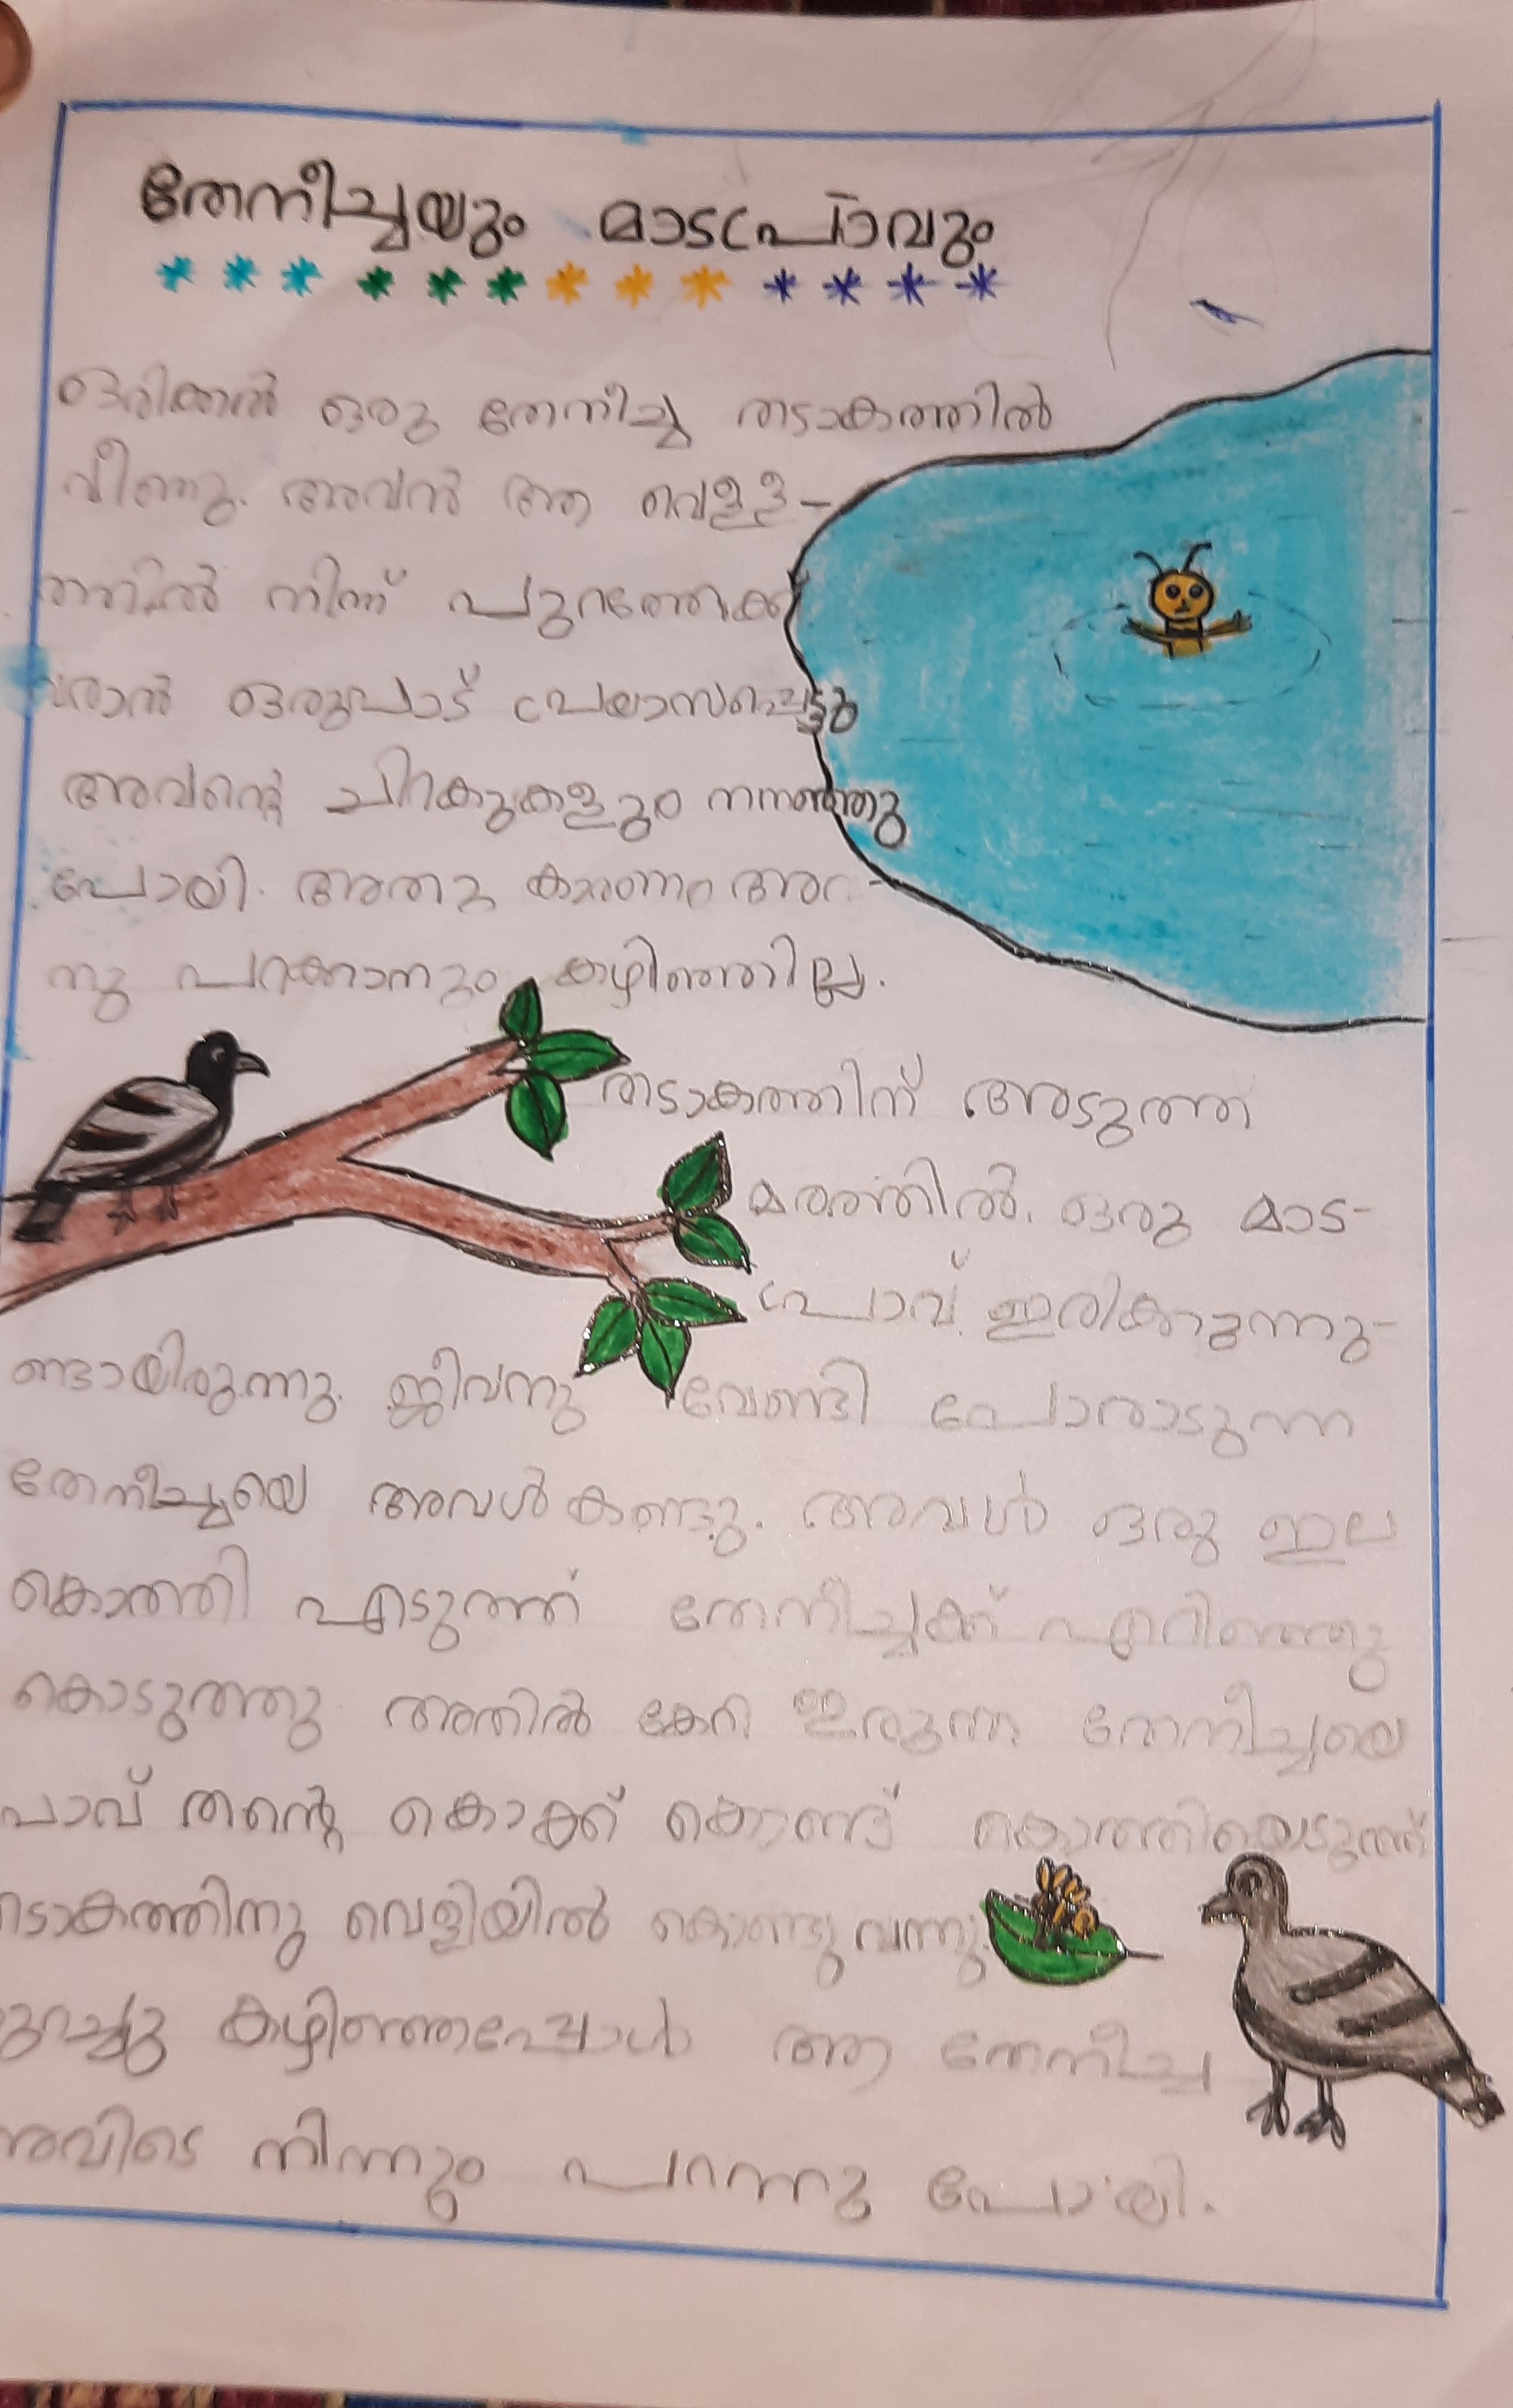 തേനീച്ചയും മാടപ്രാവും
ഒരിക്കൽ ഒരു തേനീച്ച തടാകത്തിൽ
വീണു. അവൻ ആ വെള്ള-
ത്തിൽ നിന്ന് പുറത്തേക്കു
വരാൻ ഒരുപാട് പ്രയാസപ്പെട്ടു
അവന്റെ ചിറകുകളും നനഞ്ഞു
പോയി. അതു കാരണം അവ-
നു പറക്കാനും കഴിഞ്ഞില്ല.
തടാകത്തിന് അടുത്ത
മരത്തിൽ. ഒരു മാട-
പ്രാവ് ഇരിക്കുന്നു-
ണ്ടായിരുന്നു. ജീവനു വേണ്ടി പോരാടുന്ന
തേനീച്ചയെ അവൾ കണ്ടു. അവൾ ഒരു ഇല
കൊത്തി എടുത്ത് തേനീച്ചക്ക് എറിഞ്ഞു
കൊടുത്തു അതിൽ കേറി ഇരുന്ന തേനീച്ചയെ
പ്രാവ് തന്റെ കൊക്ക് കൊണ്ട് കൊത്തിയെടുത്ത്
തടാകത്തിനു വെളിയിൽ കൊണ്ടു വന്നു.
കുറച്ചു കഴിഞ്ഞപ്പോൾ ആ തേനീച്ച
അവിടെ നിന്നും പറന്നു പോയി.